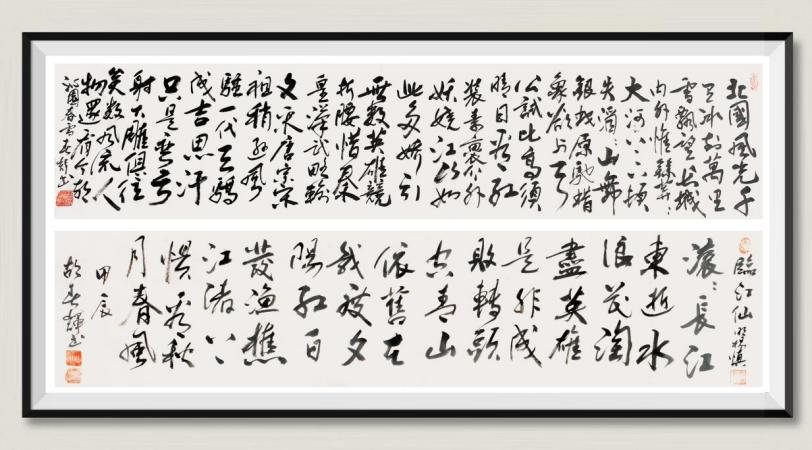 北國風光千
里冰封萬里
雪飄望長城
內外惟餘莽〻
大河上下頓
失滔〻山舞
銀蛇原馳蜡
象欲与天
公試比高須
晴日看紅
裝素裹分外
妖嬈江山如
此多嬌引
無數英雄競
折腰惜秦
皇漢武略輸
文采唐宗宋
祖稍遜風
騷一代天驕
成吉思汗
只是彎弓
射大雕俱往
矣數風流人
物還看今朝
沁園春雪 春輝書
臨江仙 明楊慎
滾〻長江
東逝水
浪花淘
盡英雄
是非成
敗轉頭
空青山
依舊在
幾度夕
陽紅白
髮漁樵
江渚上
慣看秋
月春風
甲辰
胡春輝書